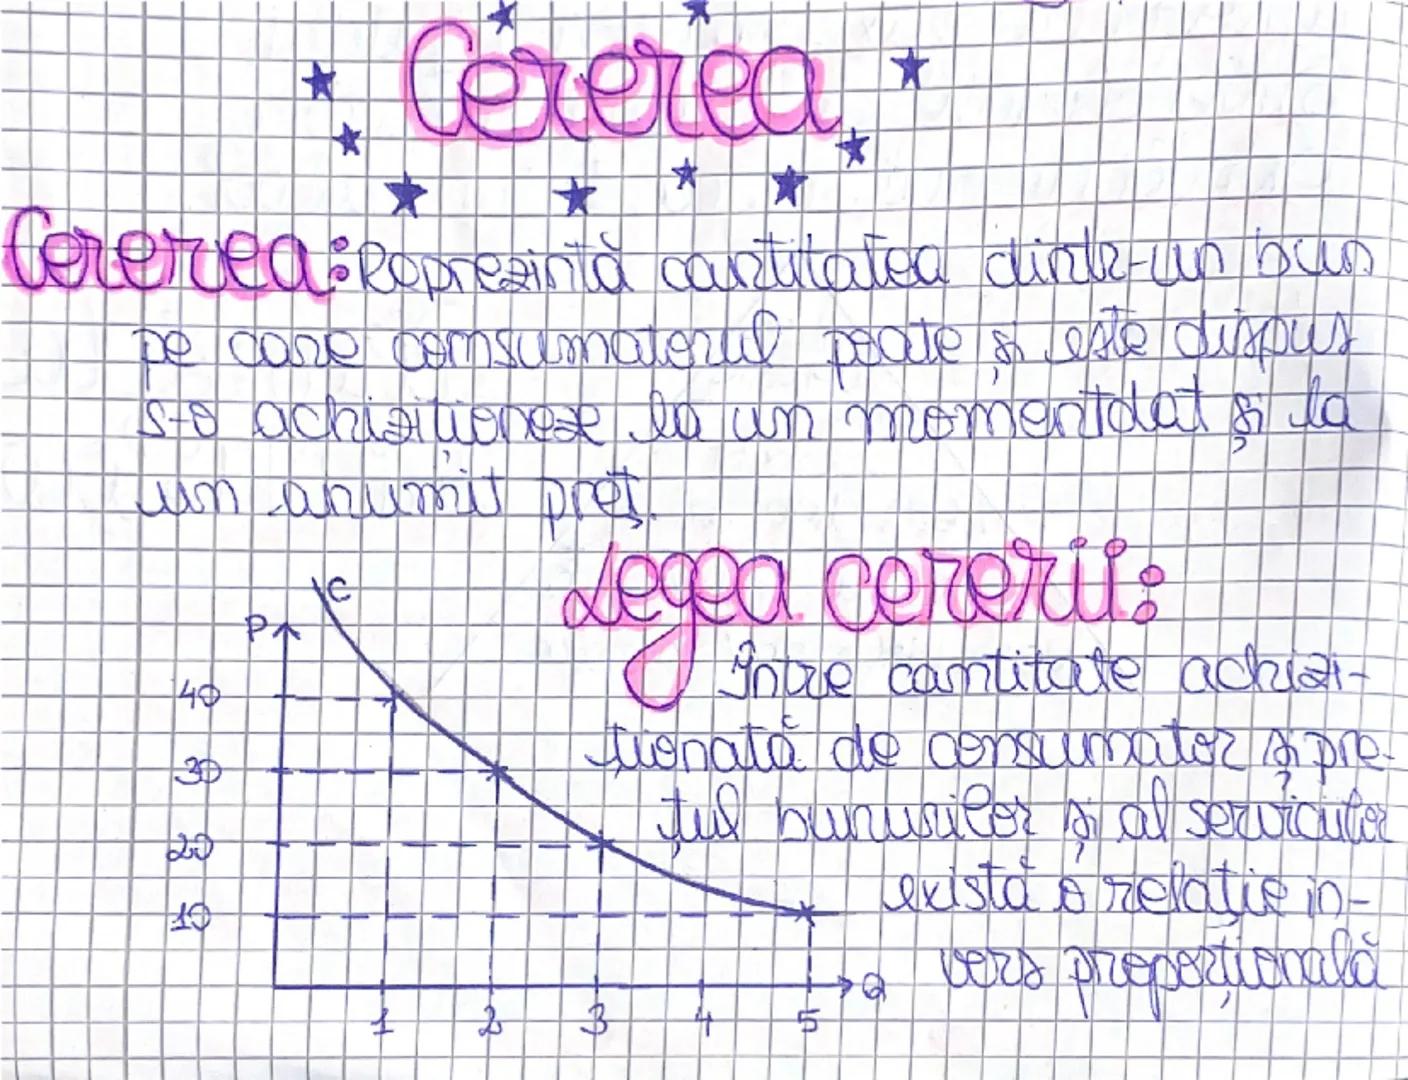 Cererea
Cererea: Reprezintă cantitatea dintr-un bun
pe care consumatorul poate și este dispus
s-o achiziționeze la un momentdat și la
un anumit preț.
Legea cererii:
C
P
Între cantitate achizi-
40
ționată de consumator și pre-
30
țul bunurilor și al serviciilor
20
există o relație in-
10
vers proporțională
Q
1 2 3 4 5